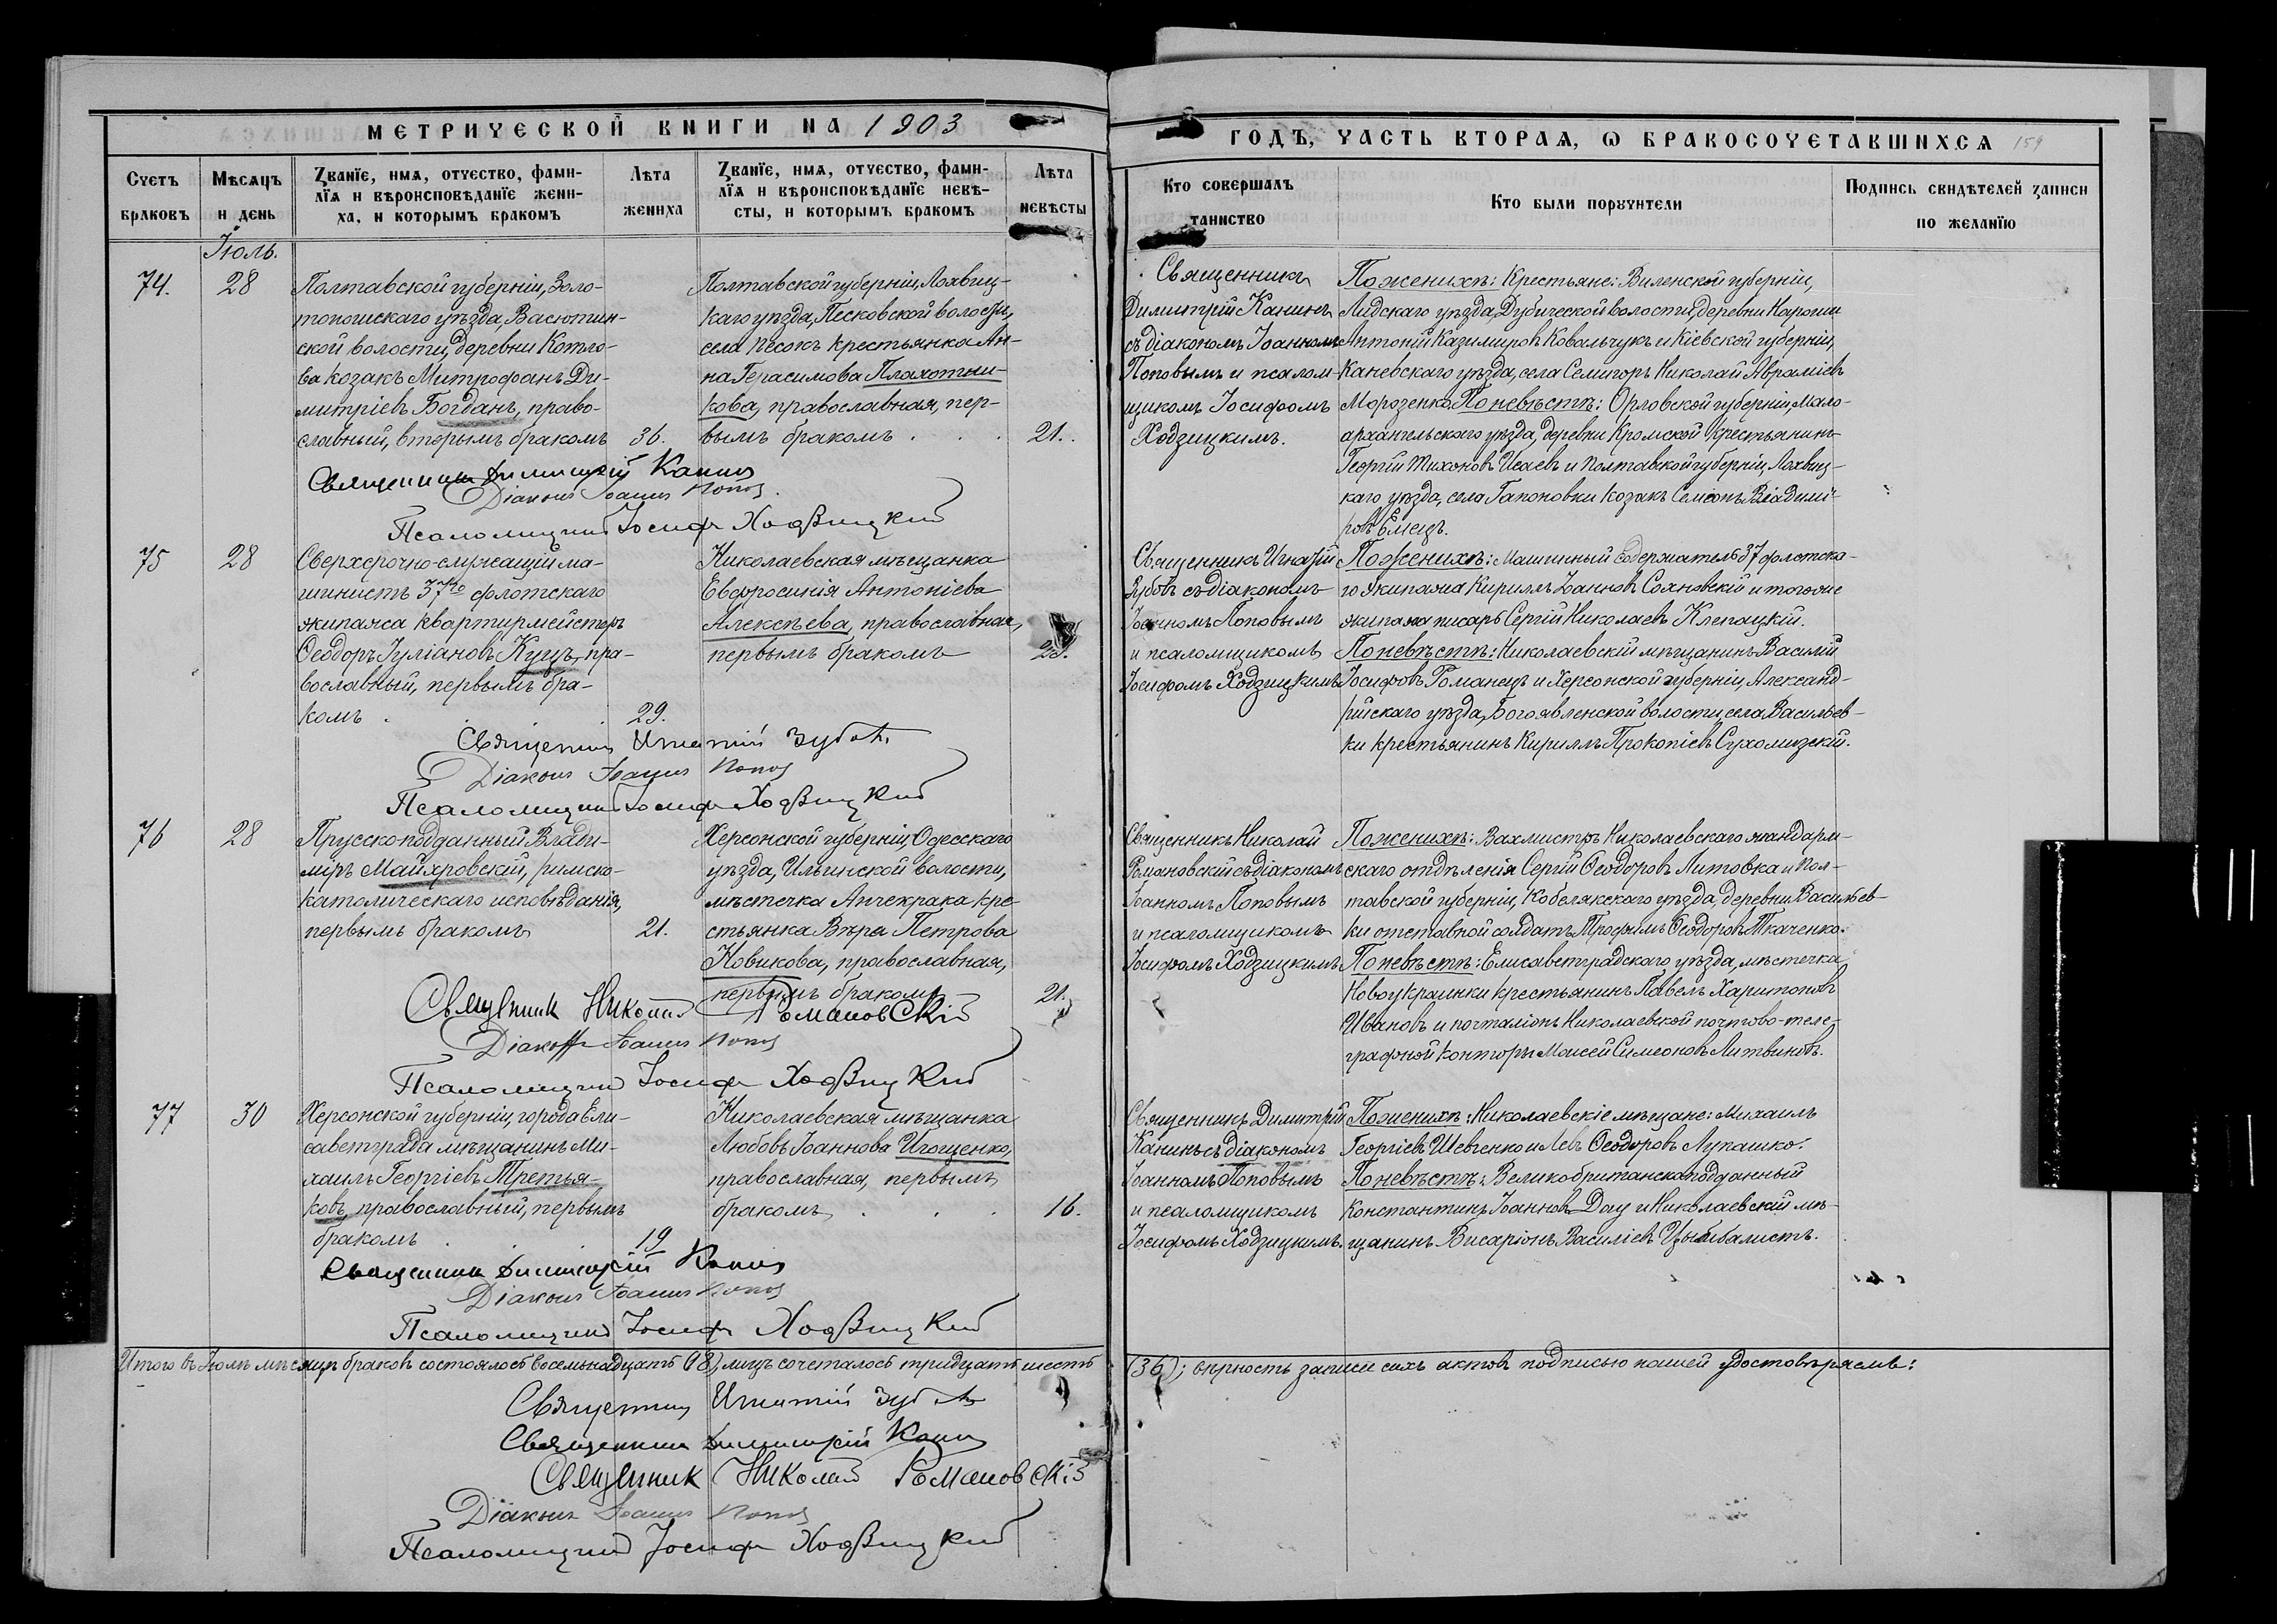 МЕТРИЧЕСКОЙ КНИГИ НА 1903
ГОДЪ, ЧАСТЬ ВТОРАЯ, Ѡ БРАКОСОЧЕТАВШИХСЯ 159
Счетъ браковъ
Мѣсяцъ и день
Званїе, имя, отчество, фами-
лїя и вѣроисповѣданїе жени-
ха, и которымъ бракомъ
Лѣта жениха
Званїе, имя, отчество, фами-
лїя и вѣроисповѣданїе невѣ-
сты, и которымъ бракомъ
Лѣта невѣсты
Кто совершалъ таинство
Кто были поручители
Подпись свидѣтелей записи по желанїю
Іюль.
74.
28
Полтавской губерніи, Золо-
тоношскаго уѣзда, Васютин-
ской волости, деревни Котло-
ва козакъ Митрофанъ Ди-
митріевъ Богданъ, право-
славный, вторымъ бракомъ
36.
Полтавской губерніи, Лохвиц-
каго уѣзда, Песковской волости,
села Песокъ крестьянка Ан-
на Герасимова Плахотни-
кова, православная, пер-
вымъ бракомъ . . .
21.
Священникъ
Димитрій Канинъ
съ діакономъ Іоанномъ
Поповымъ и псалом-
щикомъ Іосифомъ
Ходзицкимъ.
По женихѣ: Крестьяне: Виленской губерніи,
Лидскаго уѣзда, Дубической волости, деревни
Антоній Казимировъ Ковальчукъ и Кіевской губерніи,
Каневскаго уѣзда, села Семигоръ Николай Аврамовъ
Морозенко. По невѣстѣ: Орловской губерніи, Мало-
архангельскаго уѣзда, деревни Кромской крестьянинъ
Георгій Тихоновъ Исаевъ и Полтавской губерніи, Лохвиц-
каго уѣзда, села Гапоновки козакъ Семіонъ Владимі-
ровъ Емецъ.
Священникъ Димитрій Канинъ
Діаконъ Іоаннъ Поповъ
Псаломщикъ Іосифъ Ходзицкій
75
28
Сверхсрочно-служащій ма-
шинистъ 37го флотскаго
экипажа квартирмейстеръ
Ѳеодоръ Іуліановъ Куцъ, пра-
вославный, первымъ бра-
комъ . . .
29.
Николаевская мѣщанка
Евфросинія Антоніева
Алексѣева, православная,
первымъ бракомъ
Священникъ Игнатій
Зубовъ съ діакономъ
Іоанномъ Поповымъ
и псаломщикомъ
Іосифомъ Ходзицкимъ
По женихѣ: Машинный содержатель 37 флотска-
го экипажа Кириллъ Іоанновъ Сохновскій и того же
экипажа писарь Сергій Николаевъ Клепацкій.
По невѣстѣ: Николаевскій мѣщанинъ Василій
Іосифовъ Романецъ и Херсонской губерніи, Александ-
рійскаго уѣзда, Богоявленской волости, села Васильев-
ки крестьянинъ Кириллъ Прокопіевъ Сухомизскій.
Священникъ Игнатій Зубовъ
Діаконъ Іоаннъ Поповъ
Псаломщикъ Іосифъ Ходзицкій
76
28
Прусскоподданный Влади-
міръ Майхровскій, римско-
католическаго исповѣданія,
первымъ бракомъ
21.
Херсонской губерніи, Одесскаго
уѣзда, Ильинской волости,
мѣстечка Анчекрака кре-
стьянка Вѣра Петрова
Новикова, православная,
первымъ бракомъ
21.
Священникъ Николай
Романовскій съ діакономъ
Іоанномъ Поповымъ
и псаломщикомъ
Іосифомъ Ходзицкимъ
По женихѣ: Вахмистръ Николаевскаго жандарм-
скаго отдѣленія Сергій Ѳеодоровъ Литовка и Пол-
тавской губерніи, Кобелякскаго уѣзда, деревни Васильев-
ки отставной солдатъ Трофимъ Ѳеодоровъ Ткаченко.
По невѣстѣ: Елисаветградскаго уѣзда, мѣстечка
Новоукраинки крестьянинъ Павелъ Харитоновъ
Ивановъ и почталіонъ Николаевской почтово-теле-
графной конторы Моисей Симеоновъ Литвиновъ.
Священникъ Николай Романовскій
Діаконъ Іоаннъ Поповъ
Псаломщикъ Іосифъ Ходзицкій
77
30
Херсонской губерніи, города Ели-
саветграда мѣщанинъ Ми-
хаилъ Георгіевъ Третья-
ковъ, православный, первымъ
бракомъ . .
19
Николаевская мѣщанка
Любовь Іоаннова Игощенко,
православная, первымъ
бракомъ . . .
16.
Священникъ Димитрій
Канинъ съ діакономъ
Іоанномъ Поповымъ
и псаломщикомъ
Іосифомъ Ходзицкимъ.
По женихѣ: Николаевскіе мѣщане: Михаилъ
Георгіевъ Шевченко и Левъ Ѳеодоровъ Лукашко.
По невѣстѣ: Великобританскоподданный
Константинъ Іоанновъ Доу и Николаевскій мѣ-
щанинъ Висаріонъ Василіевъ Цымбалистъ.
Священникъ Димитрій Канинъ
Діаконъ Іоаннъ Поповъ
Псаломщикъ Іосифъ Ходзицкій
Итого въ Іюлѣ мѣсяцѣ браковъ состоялось восемьнадцать (18), лицъ сочеталось тридцать шесть
(36); вѣрность записи сихъ актовъ подписью нашей удостовѣряемъ:
Священникъ Игнатій Зубовъ
Священникъ Димитрій Канинъ
Священникъ Николай Романовскій
Діаконъ Іоаннъ Поповъ
Псаломщикъ Іосифъ Ходзицкій